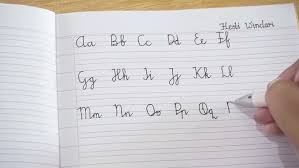 Hesti Windari
Aa Bb Cc Dd Ee Ff
Gg Hh Ii Jj Kk Ll
Mm Nn Oo Pp Qq